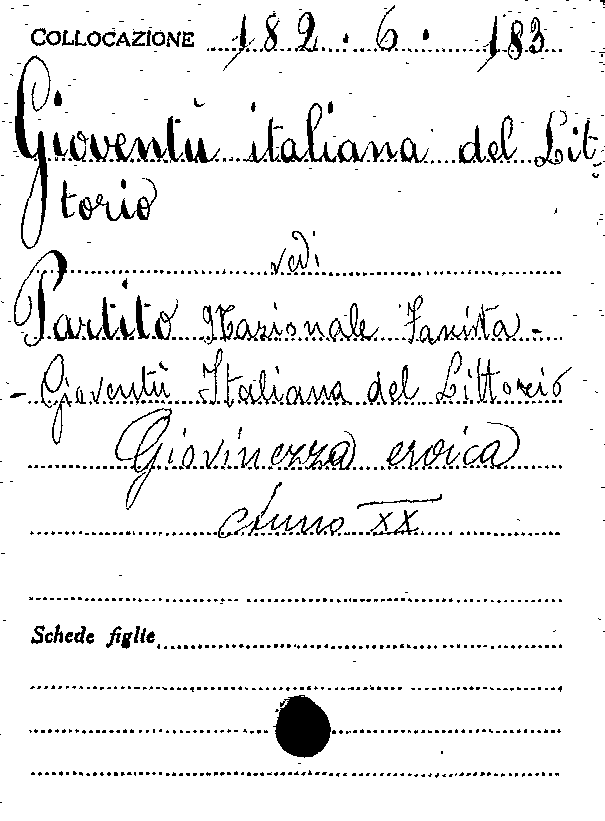 COLLOCAZIONE 182.6.183
Gioventù italiana del Lit-
torio
vedi
Partito Nazionale Fascista -
- Gioventù Italiana del Littorio
Giovinezza eroica
Anno XX
Schede figlie